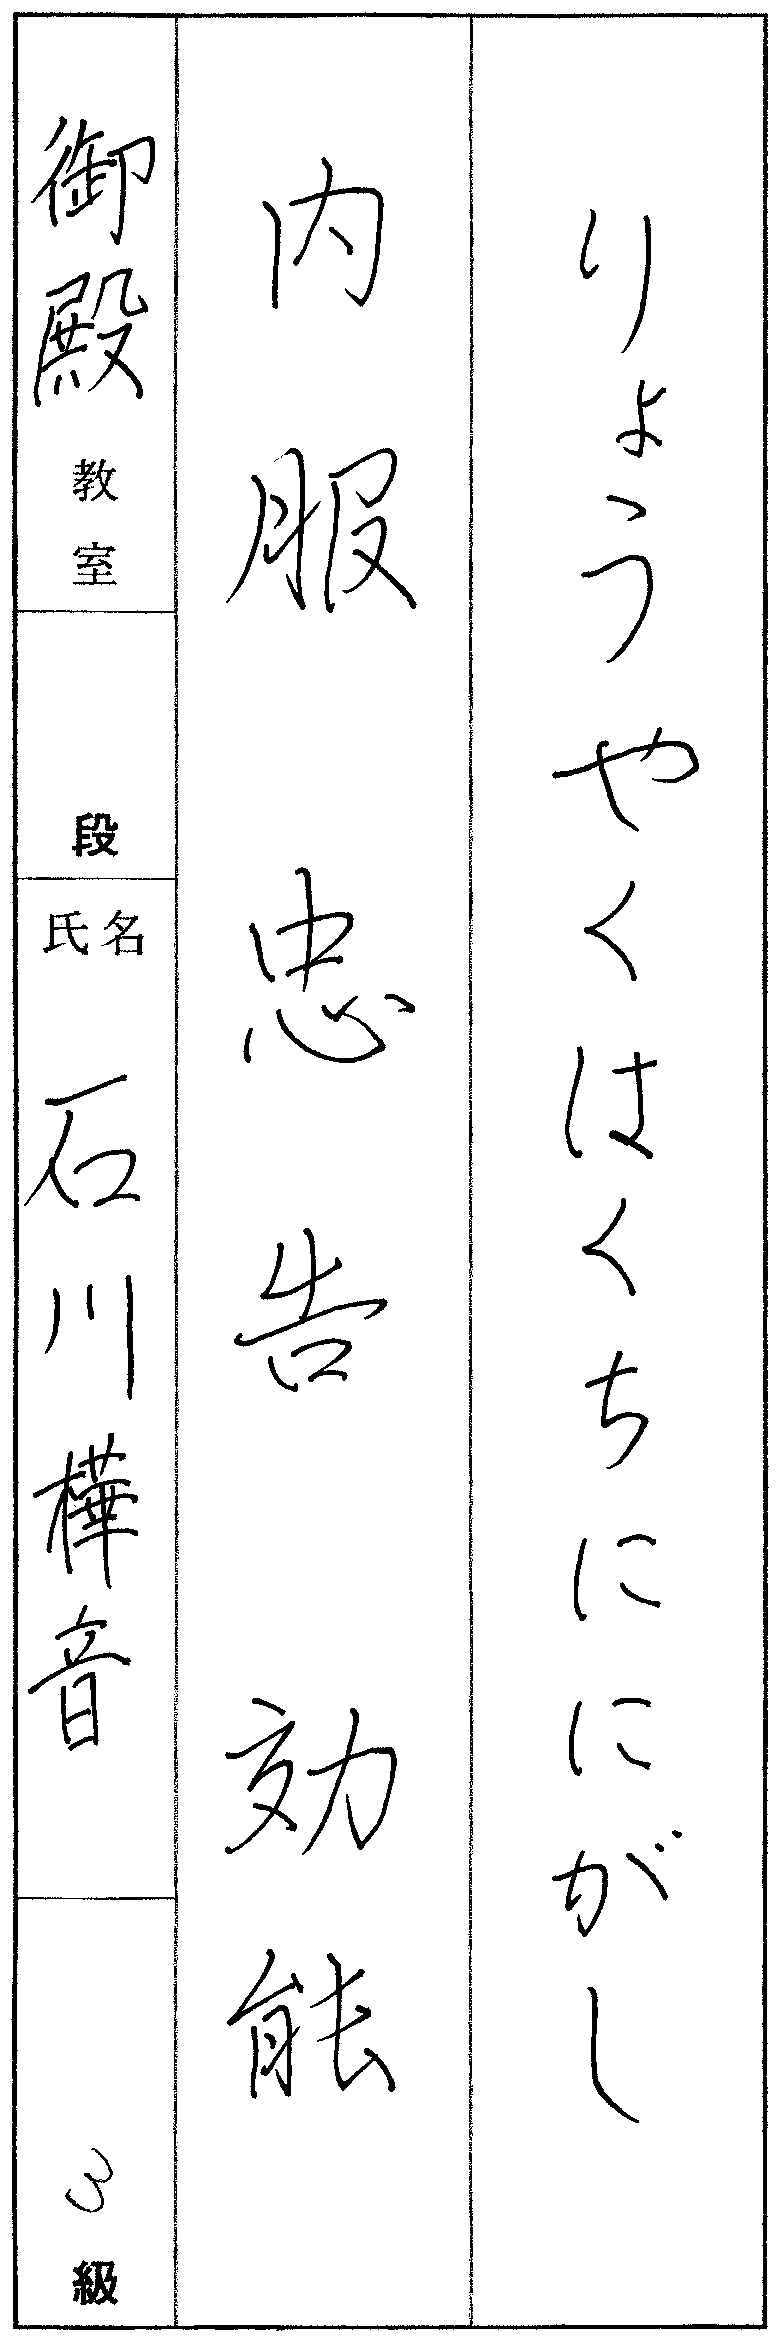 りょうやくはくちににがし
内服 忠告 効能
御殿教室
段
氏名 石川樺音
3級